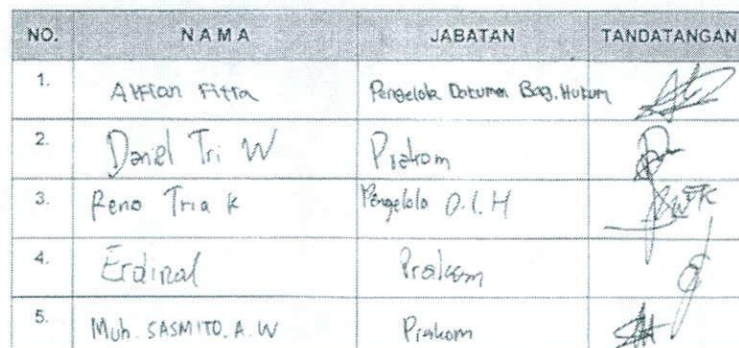 NO. NAMA JABATAN TANDATANGAN
1. Alfian Fitra Pengelola Dokumen Bag. Hukum
2. Daniel Tri W Prakom
3. Reno Tria K Pengelola D.I.H
4. Erdinal Prakom
5. Muh. SASMITO. A. W Prakom